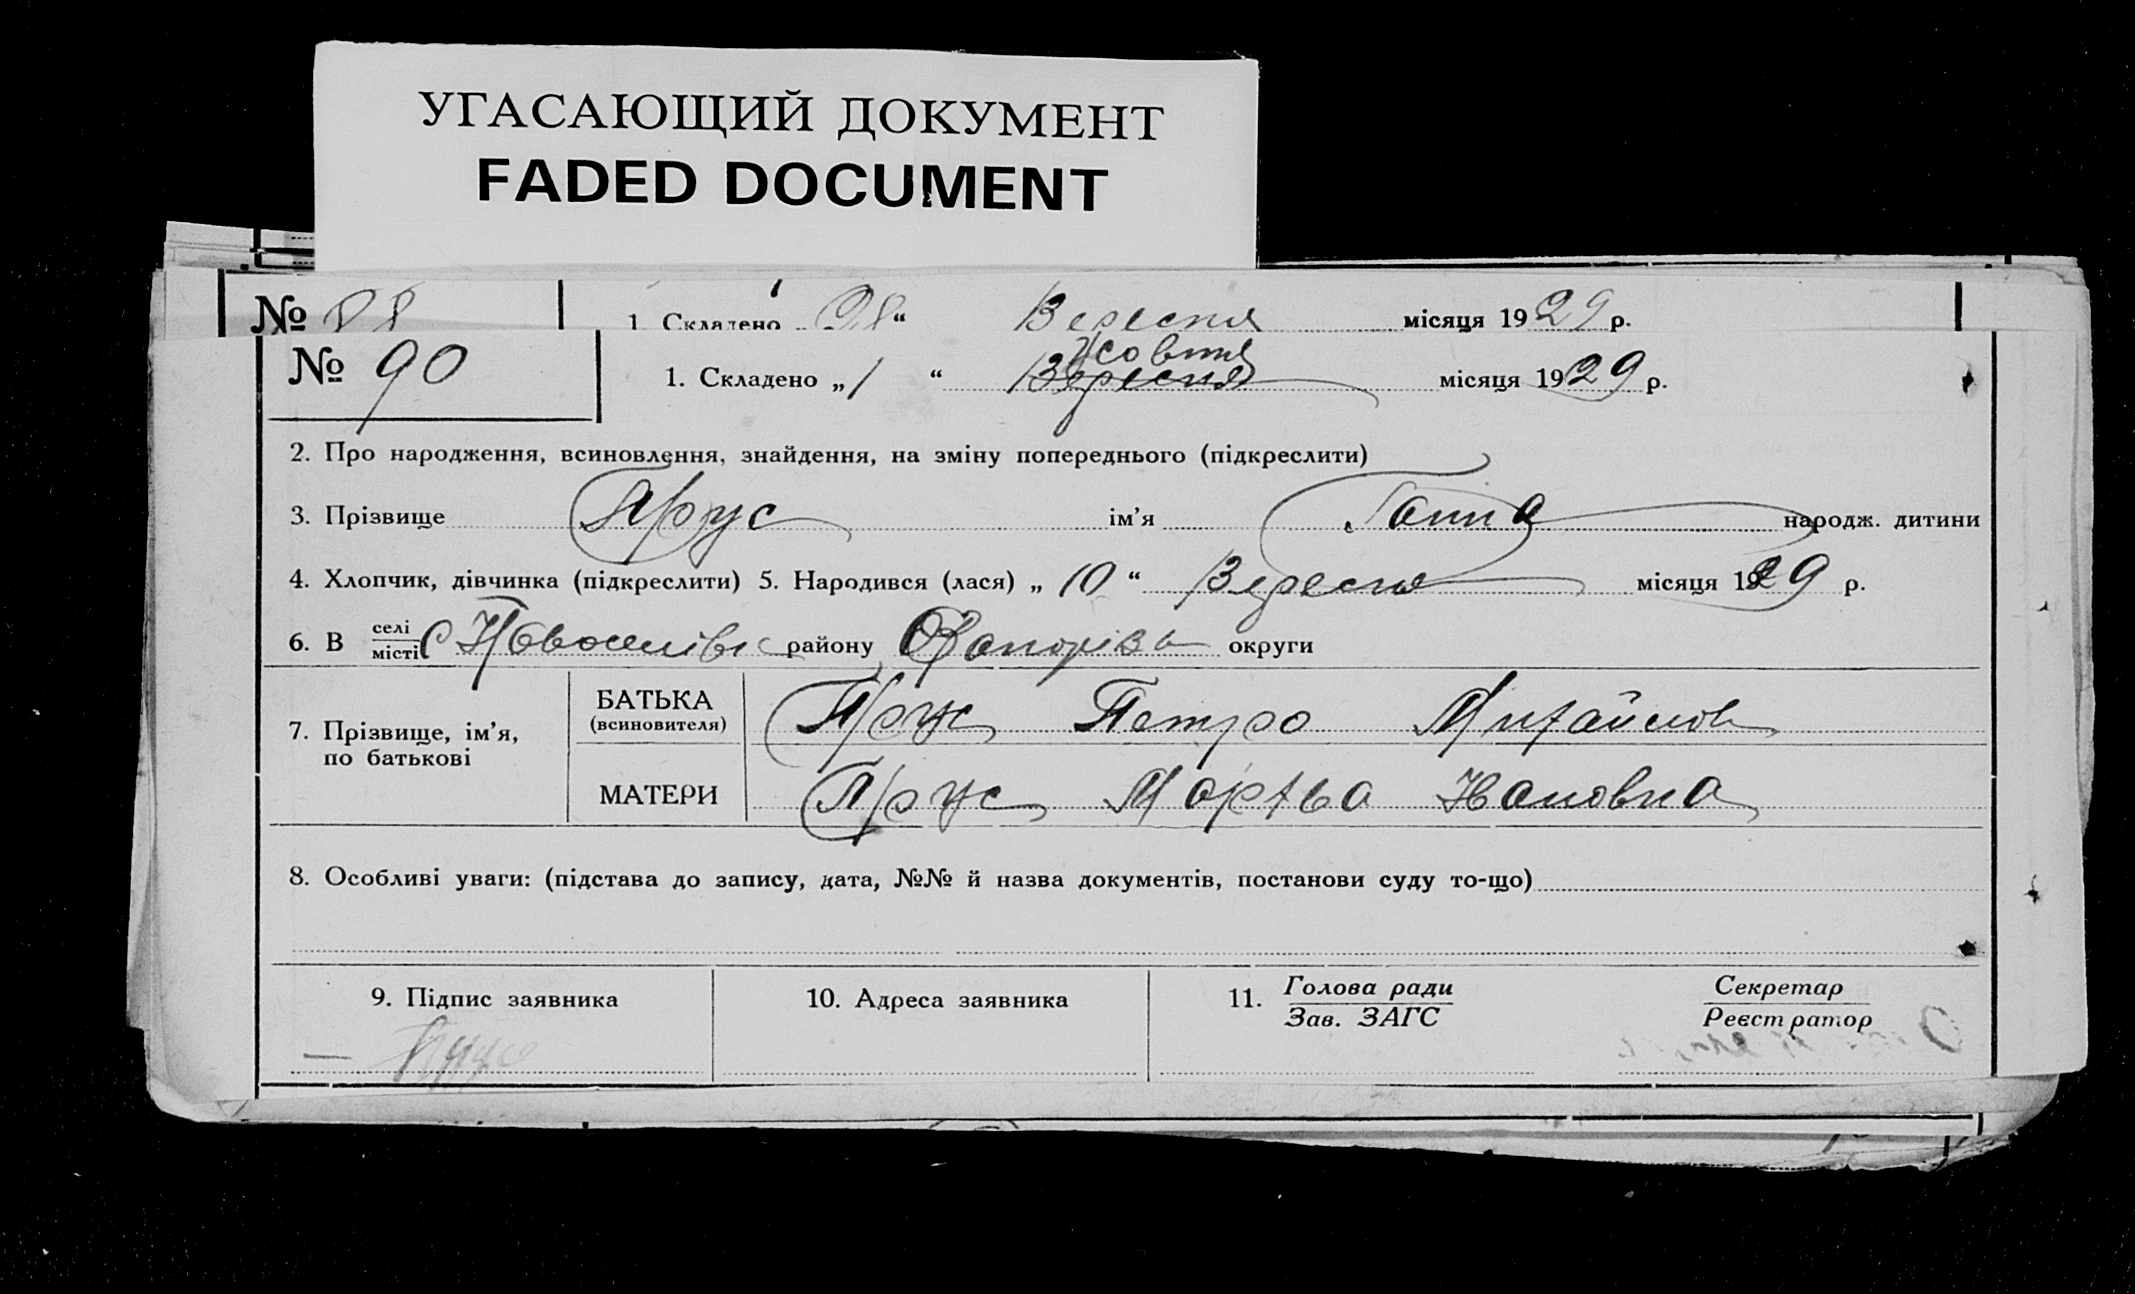 УГАСАЮЩИЙ ДОКУМЕНТ
FADED DOCUMENT
№ 88 1. Складено „28“ Вересня місяця 1929 р.
Жовтня
№ 90 1. Складено „1“ Вересня місяця 1929 р.
2. Про народження, всиновлення, знайдення, на зміну попереднього (підкреслити)
3. Прізвище Прус ім’я Ганна народж. дитини
4. Хлопчик, дівчинка (підкреслити) 5. Народився (лася) „10“ Вересня місяця 1929 р.
6. В селі/місті с району округи
7. Прізвище, ім’я, по батькові
БАТЬКА (всиновителя) Прус Петро Михайлов
МАТЕРИ Прус Марфа
8. Особливі уваги: (підстава до запису, дата, №№ й назва документів, постанови суду то-що)
9. Підпис заявника 10. Адреса заявника 11. Голова ради/Зав. ЗАГС Секретар/Реєстратор